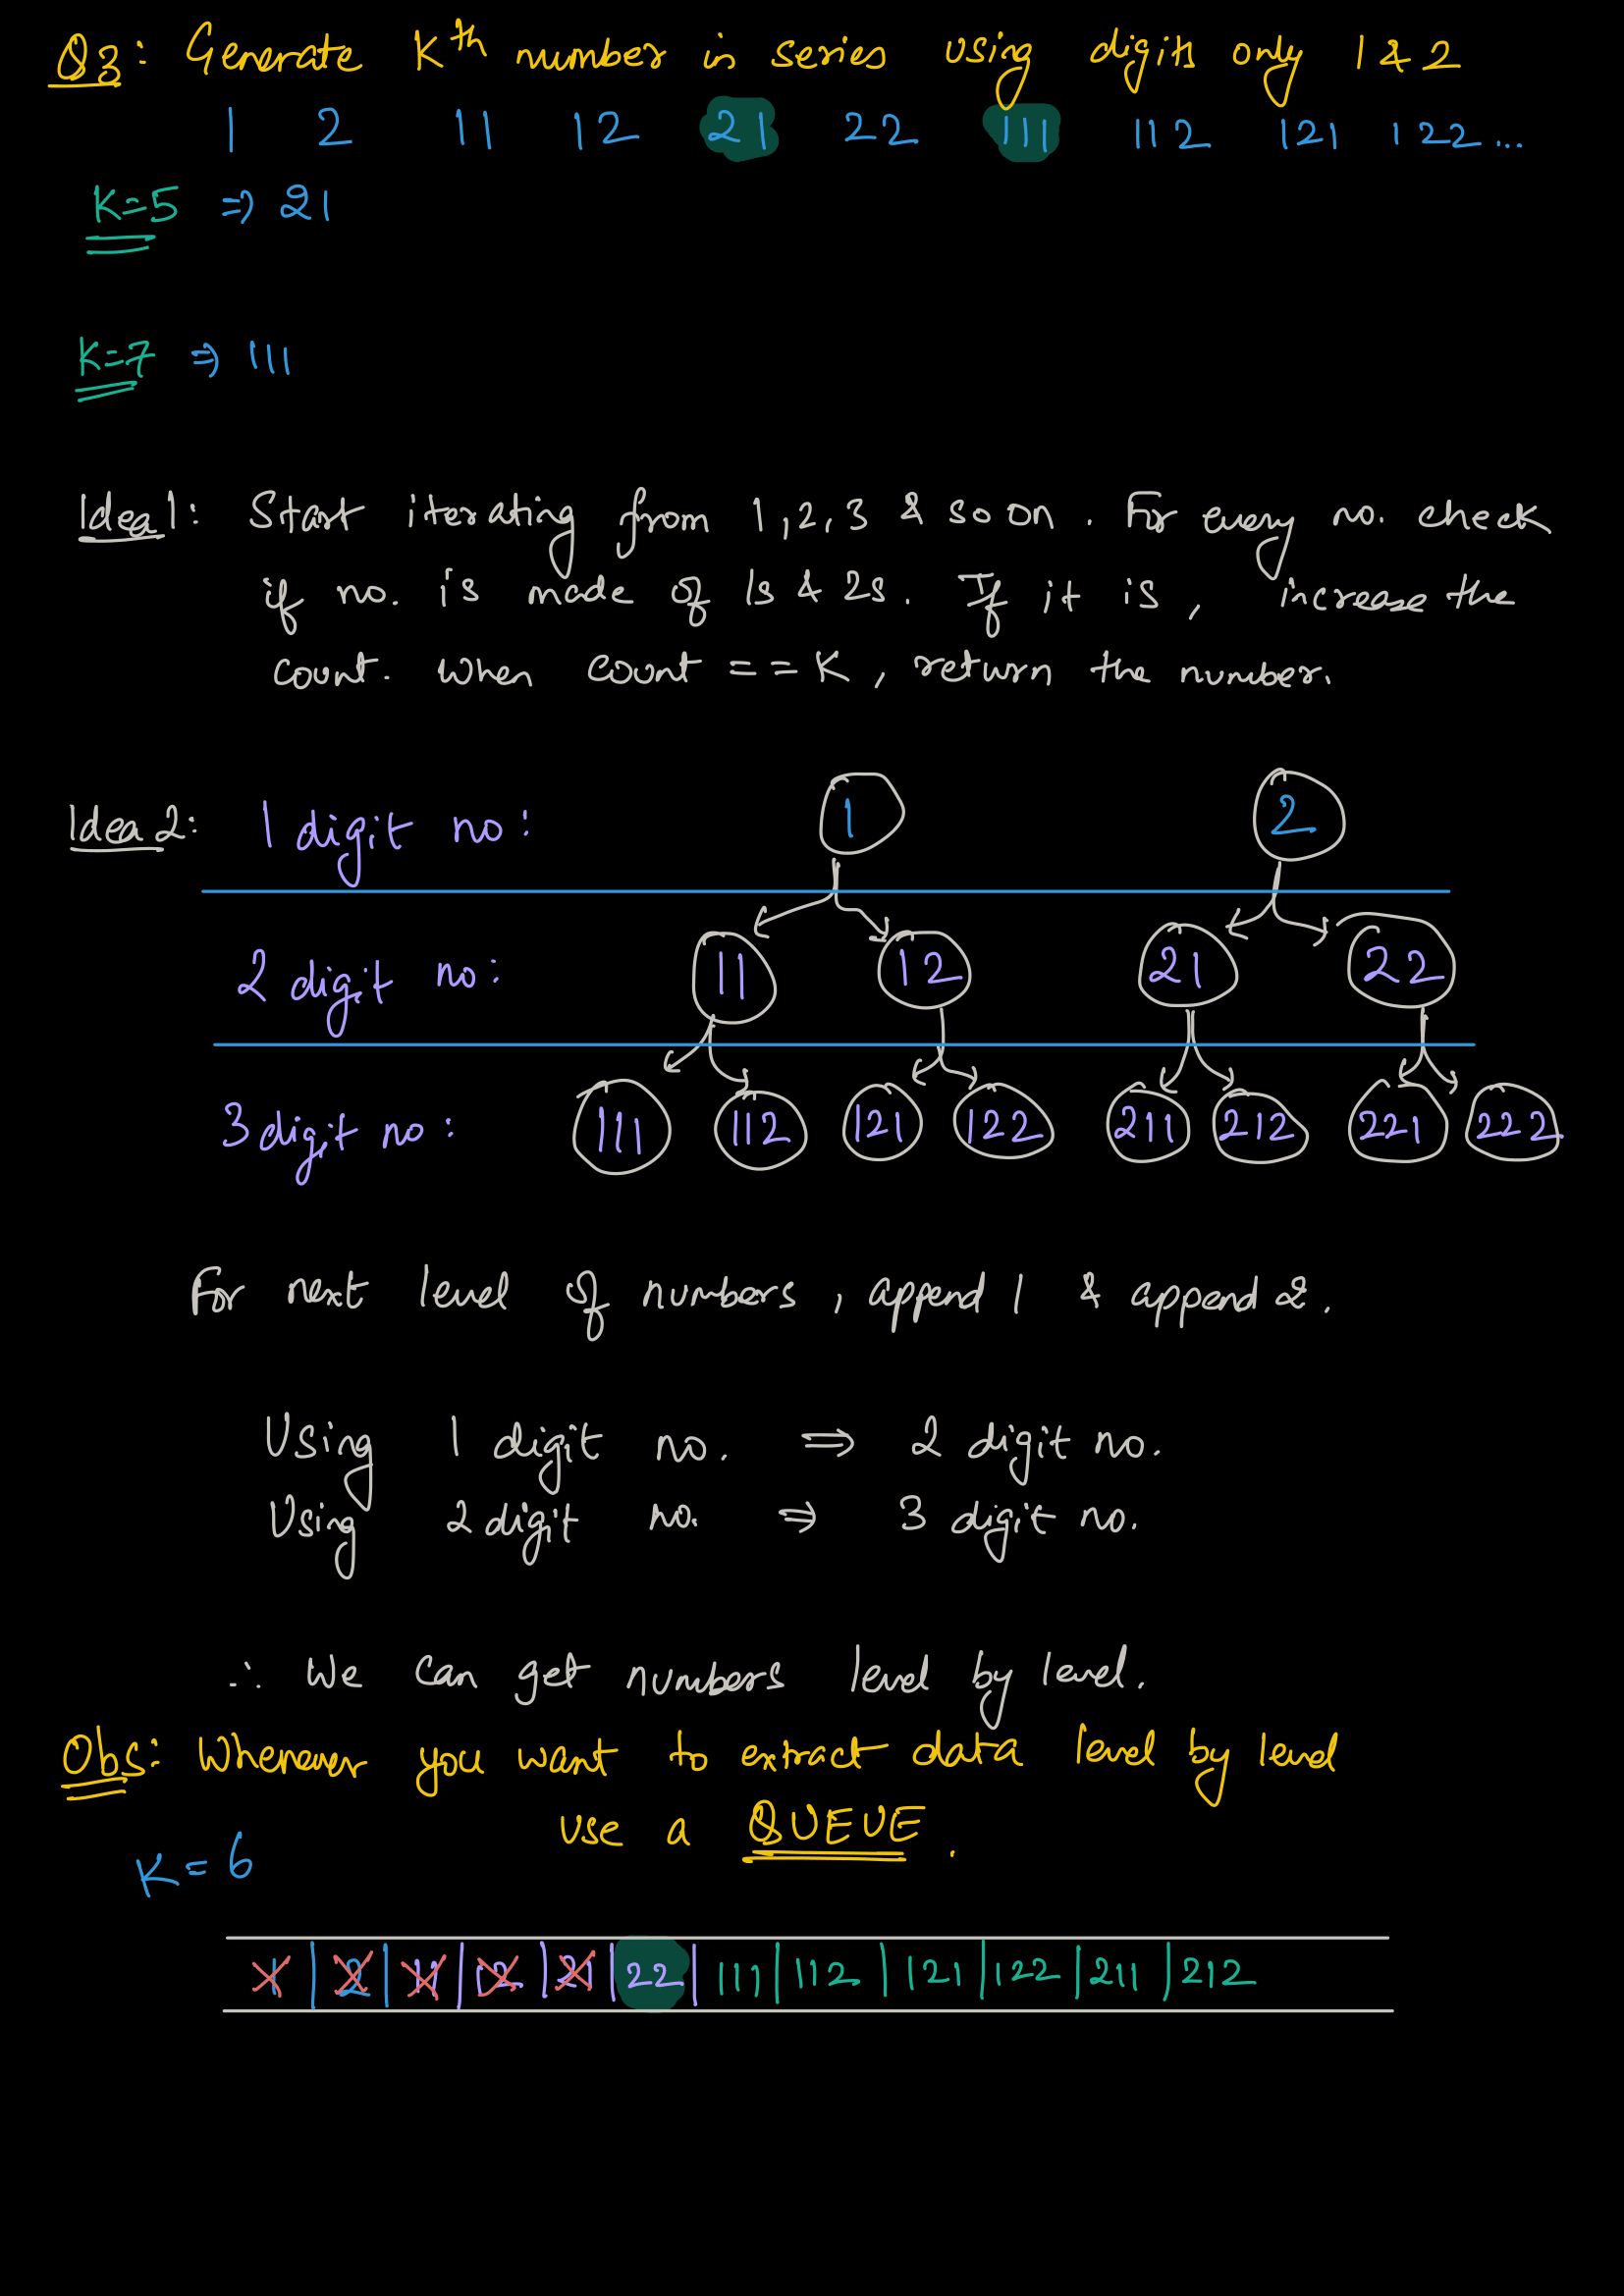 Q3: Generate Kth number in series using digits only 1 & 2
1 2 11 12 21 22 111 112 121 122...
K=5 ⇒ 21
K=7 ⇒ 111
Idea 1: Start iterating from 1, 2, 3 & so on. For every no. check
if no. is made of 1s & 2s. If it is, increase the
count. When count == K, return the number.
Idea 2: 1 digit no: 1 2
2 digit no: 11 12 21 22
3 digit no: 111 112 121 122 211 212 221 222
For next level of numbers, append 1 & append 2.
Using 1 digit no. ⇒ 2 digit no.
Using 2 digit no. ⇒ 3 digit no.
∴ We can get numbers level by level.
Obs: Whenever you want to extract data level by level
use a QUEUE.
K = 6
1 | 2 | 11 | 12 | 21 | 22 | 111 | 112 | 121 | 122 | 211 | 212